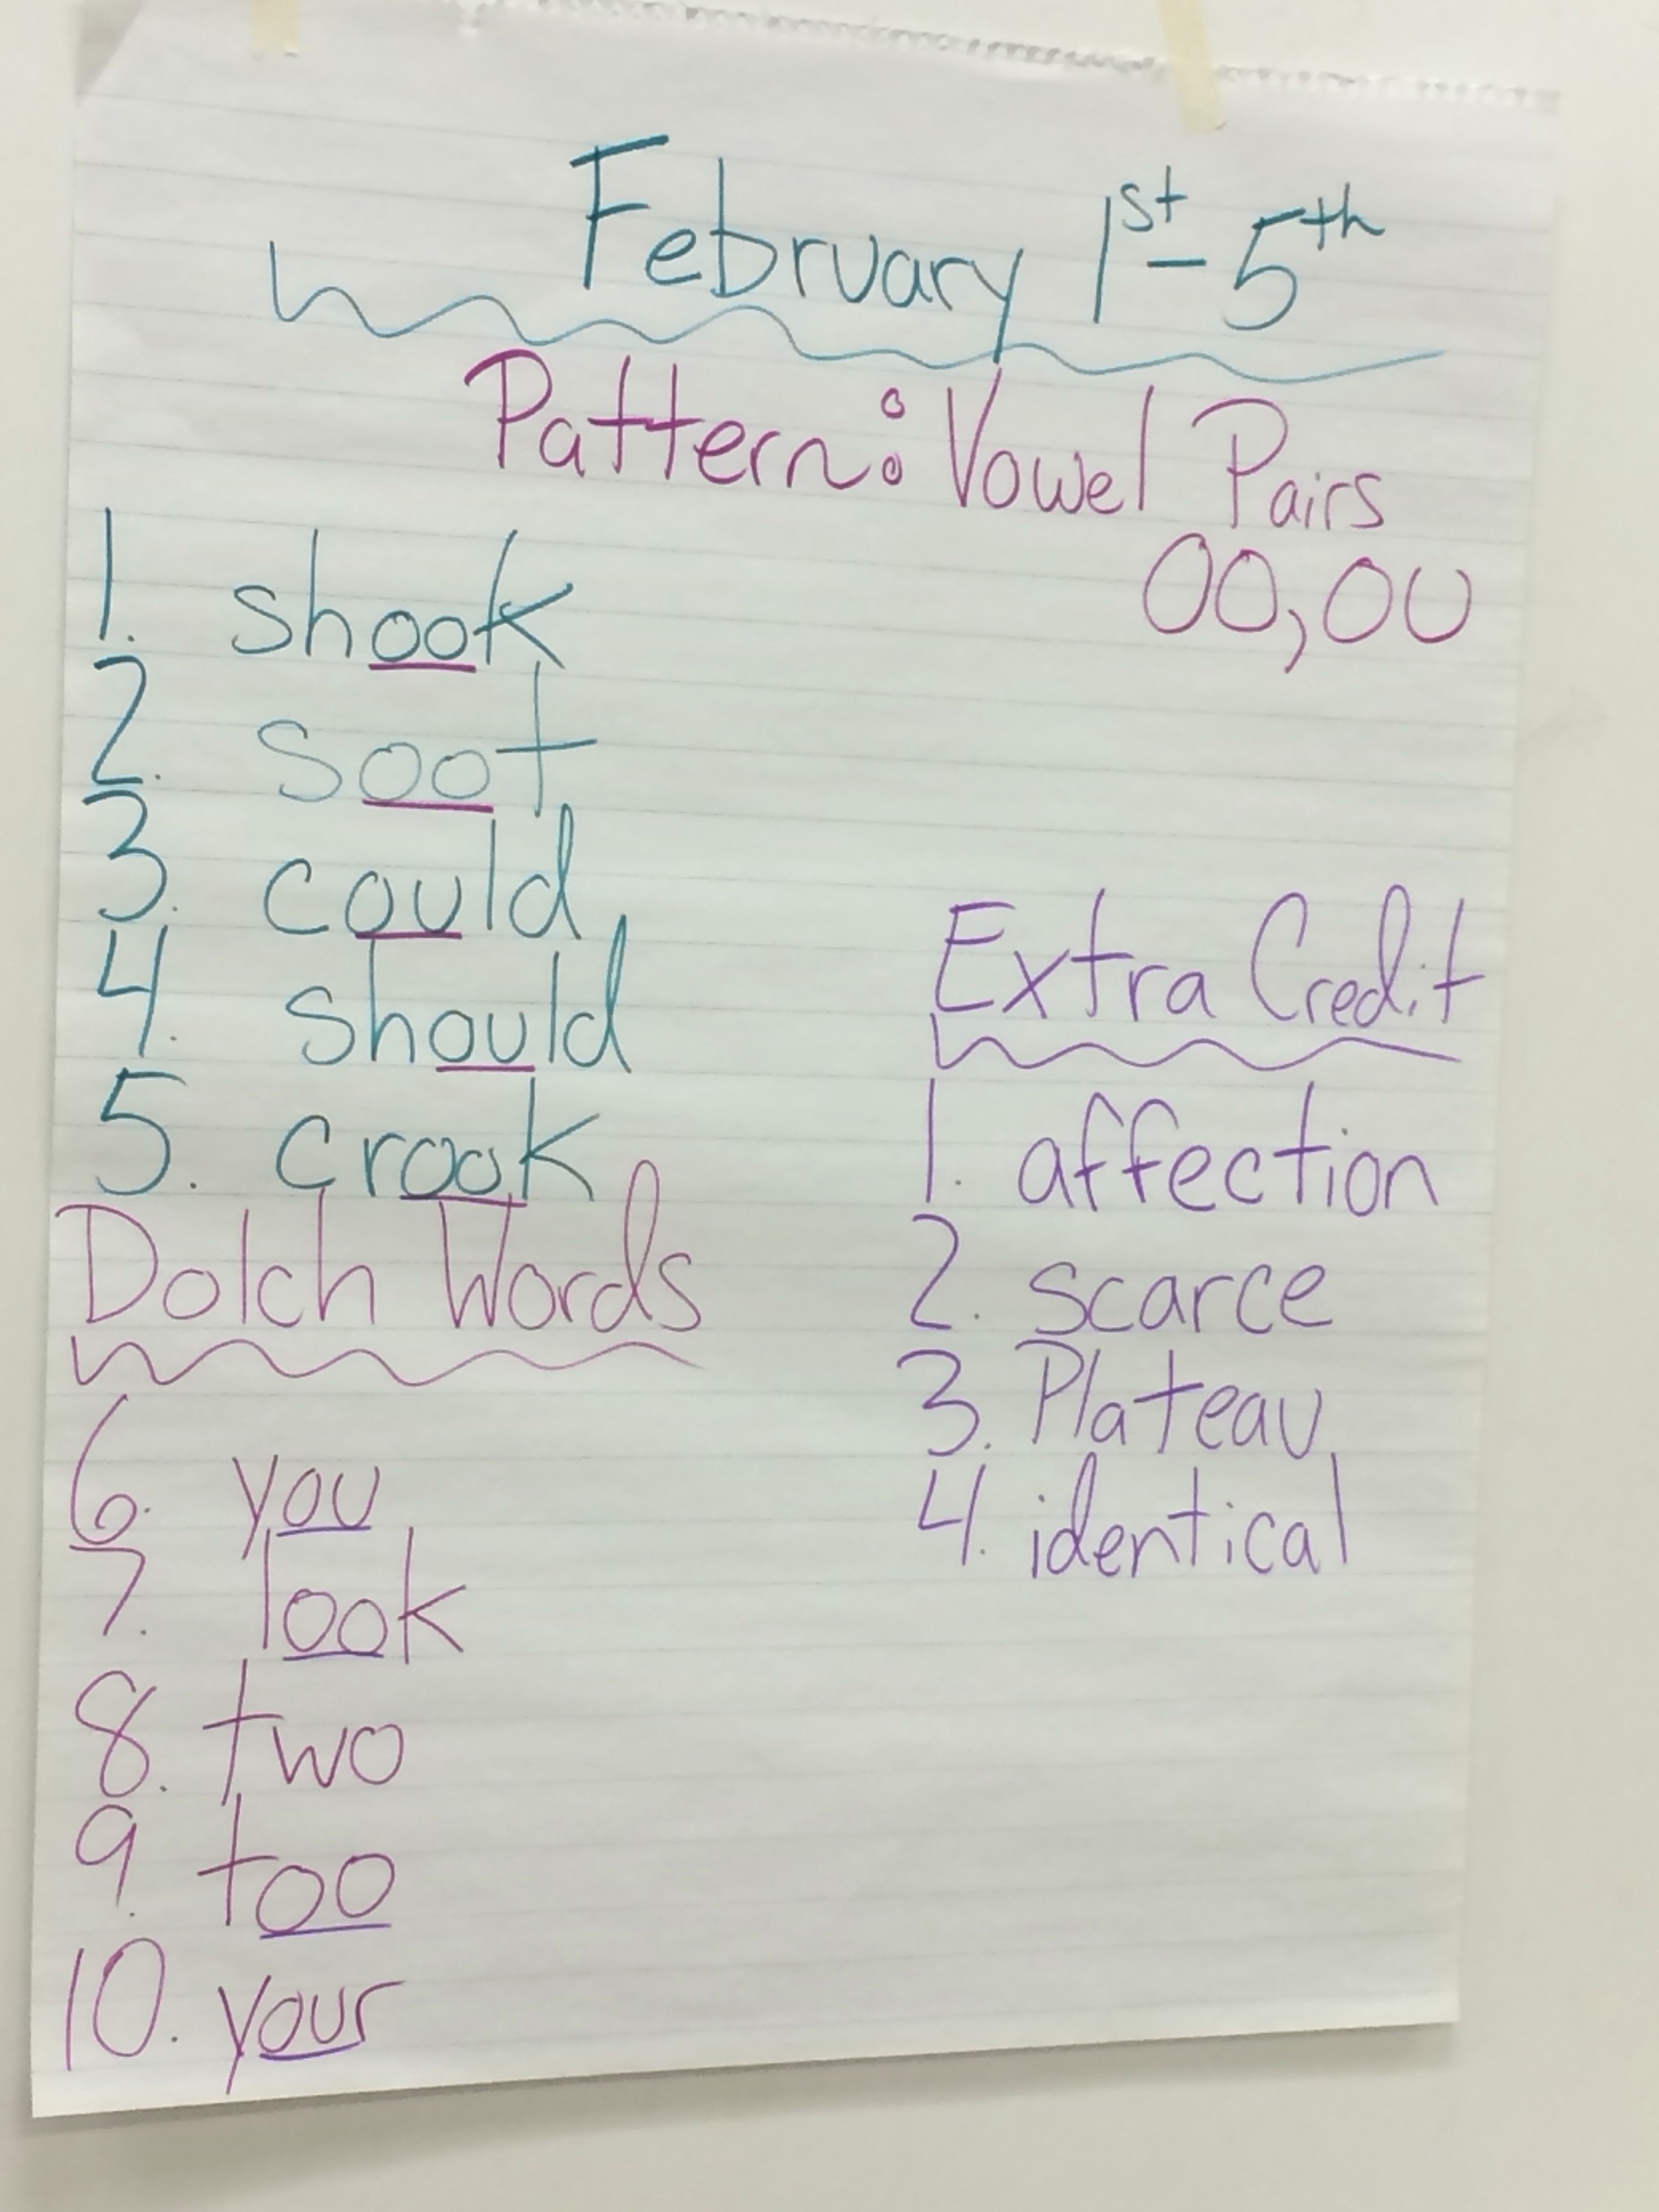 February 1st - 5th
Pattern: Vowel Pairs
OO, OU
1. shook
2. soot
3. could
4. should
5. crook
Dolch Words
6. you
7. look
8. two
9. too
10. your
Extra Credit
1. affection
2. scarce
3. Plateau
4. identical